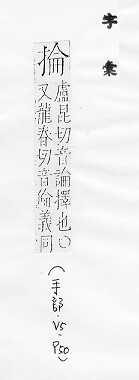 字彙
掄
盧昆切音論擇也○
又龍春切音倫義同
(手部·V5·P50)